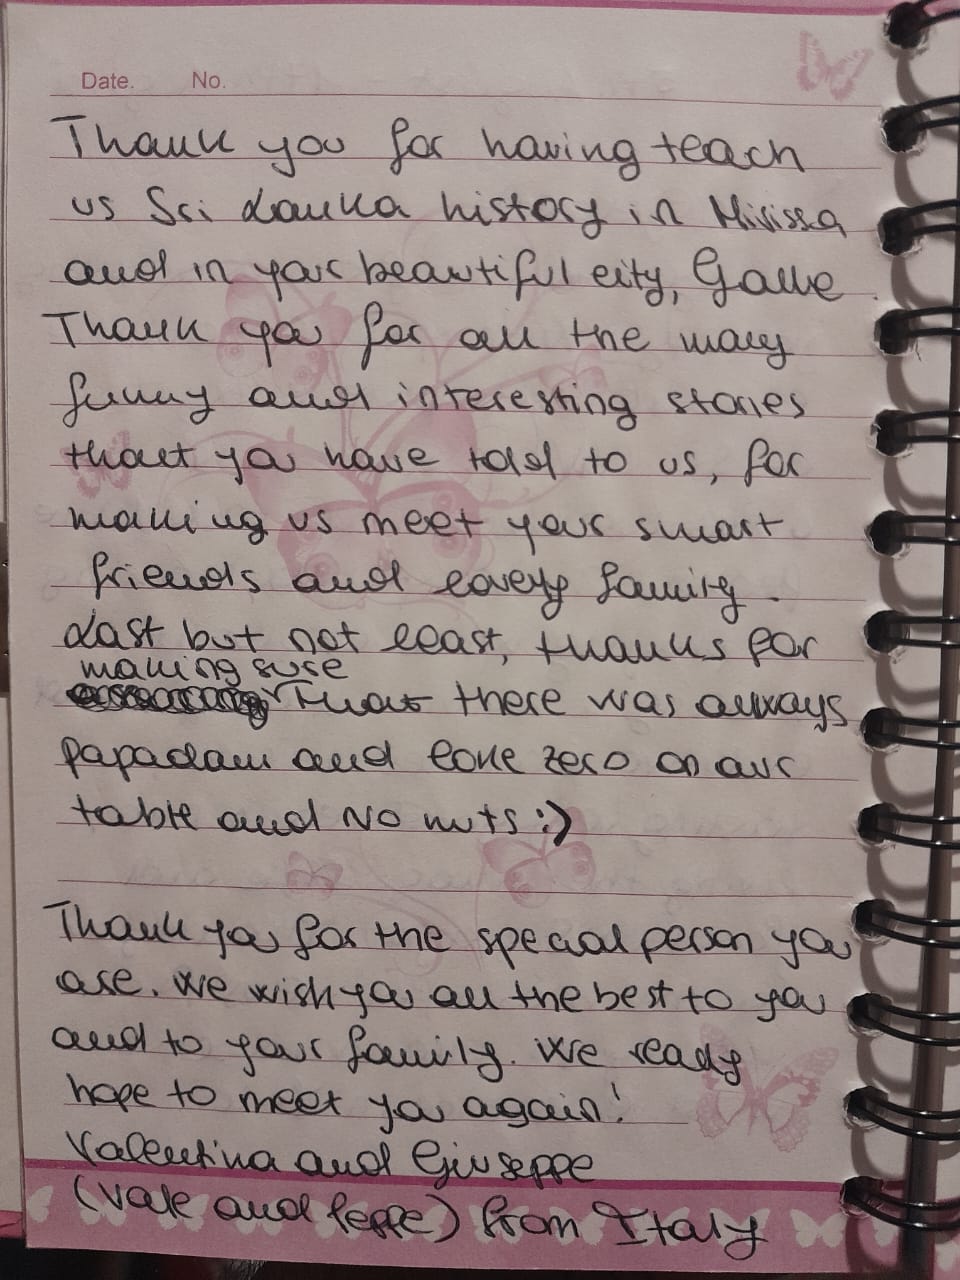 Date. No.
Thank you for having teach
us Sri Lanka history in Mirissa
and in your beautiful city, Galle.
Thank you for all the many
funny and interesting stories
that you have told to us, for
making us meet your smart
friends and lovely family.
Last but not least, thanks for
making sure
that there was always
papadam and coke zero on our
table and No nuts :)
Thank you for the special person you
are. We wish you all the best to you
and to your family. We really
hope to meet you again!
Valentina and Giuseppe
(Vale and Peppe) from Italy